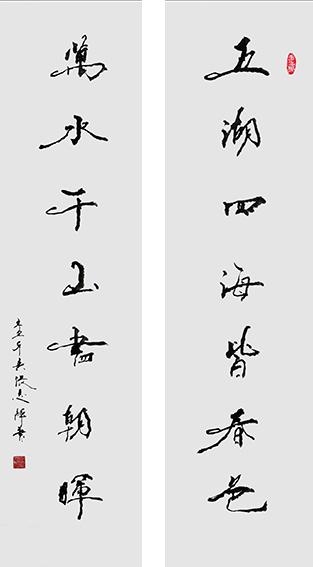 五湖四海皆春色
萬水千山盡朝暉